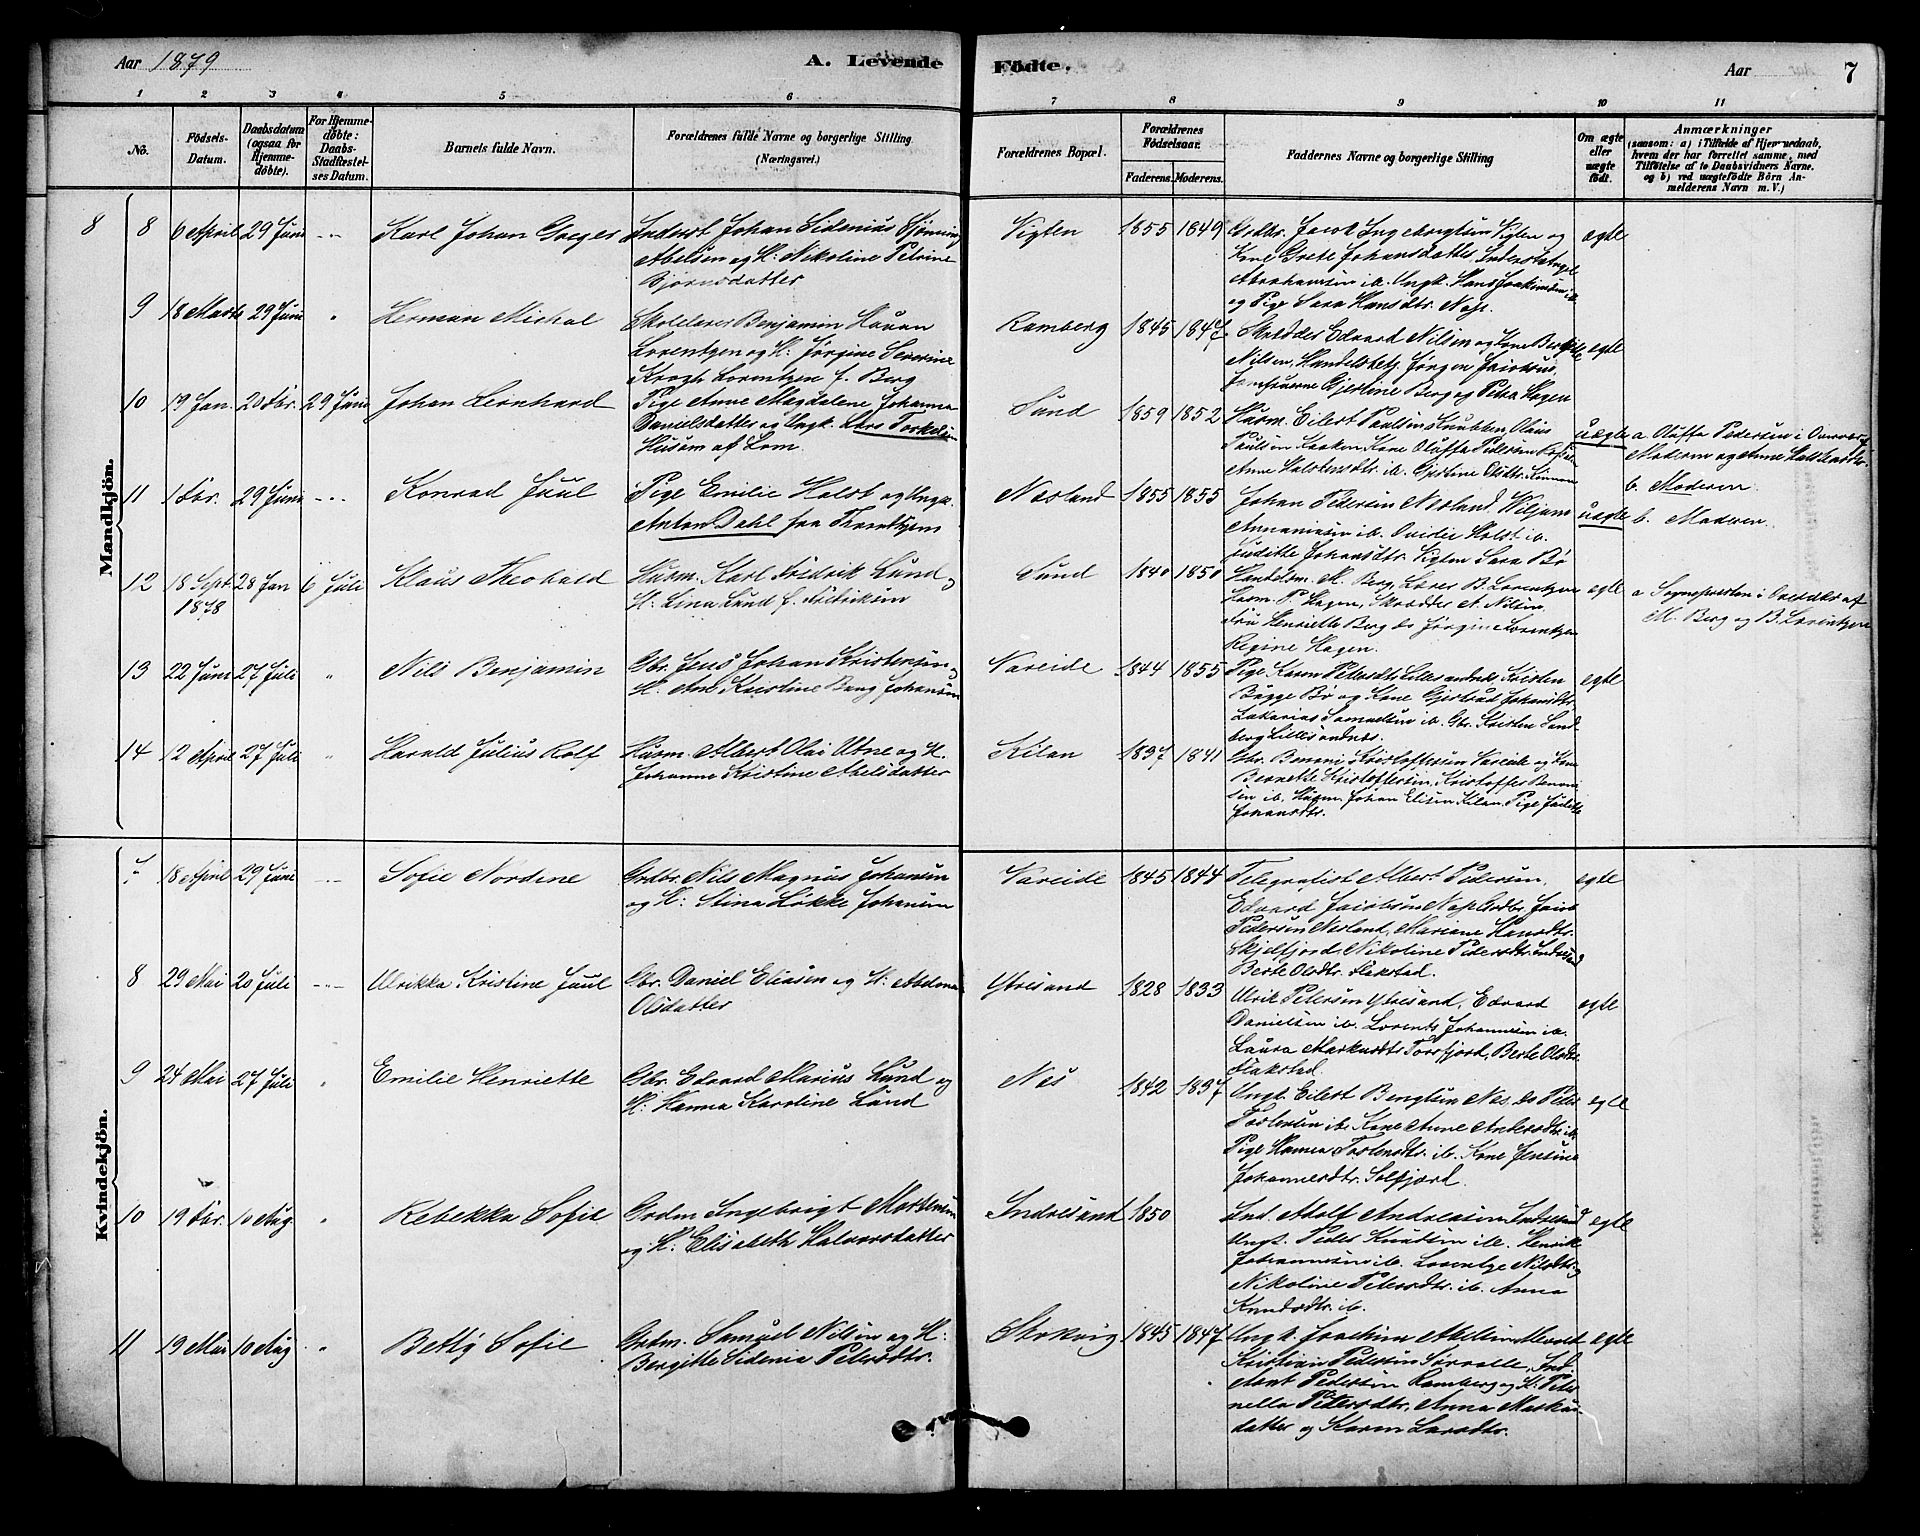 Aar 1879
A. Levende
Fødte.
Aar
7
1
2
3
4
5
6
7
8
9
10
11
No.
Födsels-
Datum.
Daabsdatum
(ogsaa for
Hjemme-
döbte).
For Hjemme-
döbte:
Daabs-
Stadfæstel-
ses Datum.
Barnets fulde Navn.
Forældrenes fulde Navne og borgerlige Stilling
(Næringsvei.)
Forældrenes Bopæl.
Forældrenes
Födselsaar.
Faderens.
Moderens.
Faddernes Navne og borgerlige Stilling
Om ægte
eller
uægte
födt.
Anmærkninger
(saasom: a) i Tilfælde af Hjemmedaab,
hvem der har forrettet samme, med
Tilföielse af to Daabsvidners Navne.
og b) ved uægtefödte Börn An-
melderens Navn m. V.)
Mandkjön.
8
8
6 April
29 Juni
Karl Johan
Inderst Johan Sidenius
Abelsen og H: Nikoline Petrine
Bjørnsdatter
Vigten
1855
1849
Grdbr. Jacob Ingebrigtsen Vigten og
Kone Grete Johansdatter,
Abrahamsen ib. Ungk. Hans Joakimsen ib.
og Pige Sara Hansdtr. Nap.
egte
9
18 Marts
29 Juni
"
Herman Michal
Skolelærer Benjamin
Lorentzen og H: Jørgine Severine
Krogh Lorentzen f. Berg
Ramberg
1845
1847
Skrædder Edvard Nilsen og Kone
Nilsen, Handelsbetj. Jørgen
Jomfruerne Gjertine Berg og Petra Hagen
egte
10
19 Jan.
20 Fbr.
29 Juni
Johan Leonhard
Pige Anne Magdalene Johanna
Danielsdatter og Ungk. Lars Torkelsen
Husom af Lom.
Sund
1859
1852
Husm. Eilert Paulsen Olaus
Paulsen Kone Oluffa Pedersen
Anne ib. Gjertine Olsdtr.
uægte
a Oluffa Pedersen i Overvær af
Moderen og Anne
b. Moderen.
11
1 Fbr.
29 Juni
Konrad Juul
Pige Emilie Holst og Ungk.
Anton Dahl fra Throndhjem
Nesland
1855
1855
Johan Pedersen Nesland, Wiljam
Annaniasen ib. Ovidie Holst ib.
Juditte Johansdtr. Vigten Sara Bø
uægte
b. Moderen.
12
18 Sept
1878
28 Jan
6 Juli
Klaus Theobald
Husm. Karl Fredrik Lund og
H. Lina Lund f. Fredriksen
Sund
1840
1850
Handelsm. M. Berg, Lærer B. Lorentzen
Husm. P. Hagen, Skrædder N. Nilsen
Fru Henriette Berg do Jørgine Lorentzen
Regine Hagen.
egte
a Sognepresten i Overvær af
M. Berg og B. Lorentzen
13
22 Juni
27 Juli
"
Nils Benjamin
Gbr. Jens Johan Kristensen og
H. Ane Kristine Bang Johansen
Vareide
1844
1855
Pige Karen Petersdtr Lillesandnes Kristen
Bügge Bø og Kone Gjertrud Johansdtr.
Zakarias Samuelsen ib. Gbr. Kristen Sand-
berg Lillesandnes.
egte
14
12 April
27 Juli
"
Harald Julius Rolf
Husm. Albert Olai Utne og H.
Johanna Kristine Abelsdatter
Kilan
1837
1841
Gbr. Benoni Kristoffersen Vareide og Kone
Bernette Kristoffersen, Kristoffer Benoni-
sen ib. Husm. Johan Elisen Kilan, Pige Juditte
Johansdtr.
Kvindekjön.
7
18 April
29 Juni
Sofie Nordine
Grdbr. Nils Magnus Johansen
og H. Stina Løkke Johansen
Vareide
1845
1844
Telegrafist Albert Pedersen,
Edvard Jacobsen Nap Grdbr. Jacob
Pedersen Nesland, Mariane Hansdtr.
Skjelfjord, Nikoline Pedersdtr.
Berte Olsdtr. Flakstad.
egte
8
29 Mai
20 Juli
Ulrikka Kristine Juul
Gbr. Daniel Eliasen og H: Abelone
Olsdatter
Ytresand
1828
1833
Ulrik Petersen Ytresand, Edvard
Danielsen ib. Lorents Johannesen ib.
Laura Markusdtr Torsfjord, Berte Olsdtr.
Flakstad.
egte
9
24 Mai
27 Juli
"
Emilie Henriette
Gbr. Edvard Marius Lund og
H: Hanna Karoline Lund
Nes
1842
1837
Ungk. Eilert Bengtsen Nes, do Peder
Tostensen ib. Kone Anne Andersdtr. ib.
Pige Hanna Tostensdtr. ib. Kone Jensine
Johannesdtr. Solfjord.
egte
10
19 Fbr.
10 Aug
"
Rebekka Sofie
Grdm Ingebrigt Mortensen
og H: Elisabeth Halvorsdatter
Indresund
1850
Ind. Adolf Andreasen Indresund
Ungk. Peder Knutsen ib. Henrik
Johannesen ib. Lorentze Nilsdtr.
Nikoline Petersdtr. ib. Anna
Knudsdtr. ib.
egte
11
19 Mai
10 Aug
"
Betty Sofie
Grdm. Samuel Nilsen og H:
Bergitte Sidenia Petersdtr.
Stokvig
1845
1847
Ungk. Joachim Abelsen
Kristian Pedersen Ind.
Arnt Pedersen Ramberg og H: Peter-
nella Petersdtr., Anna Markus-
datter og Karen Larsdtr.
egte